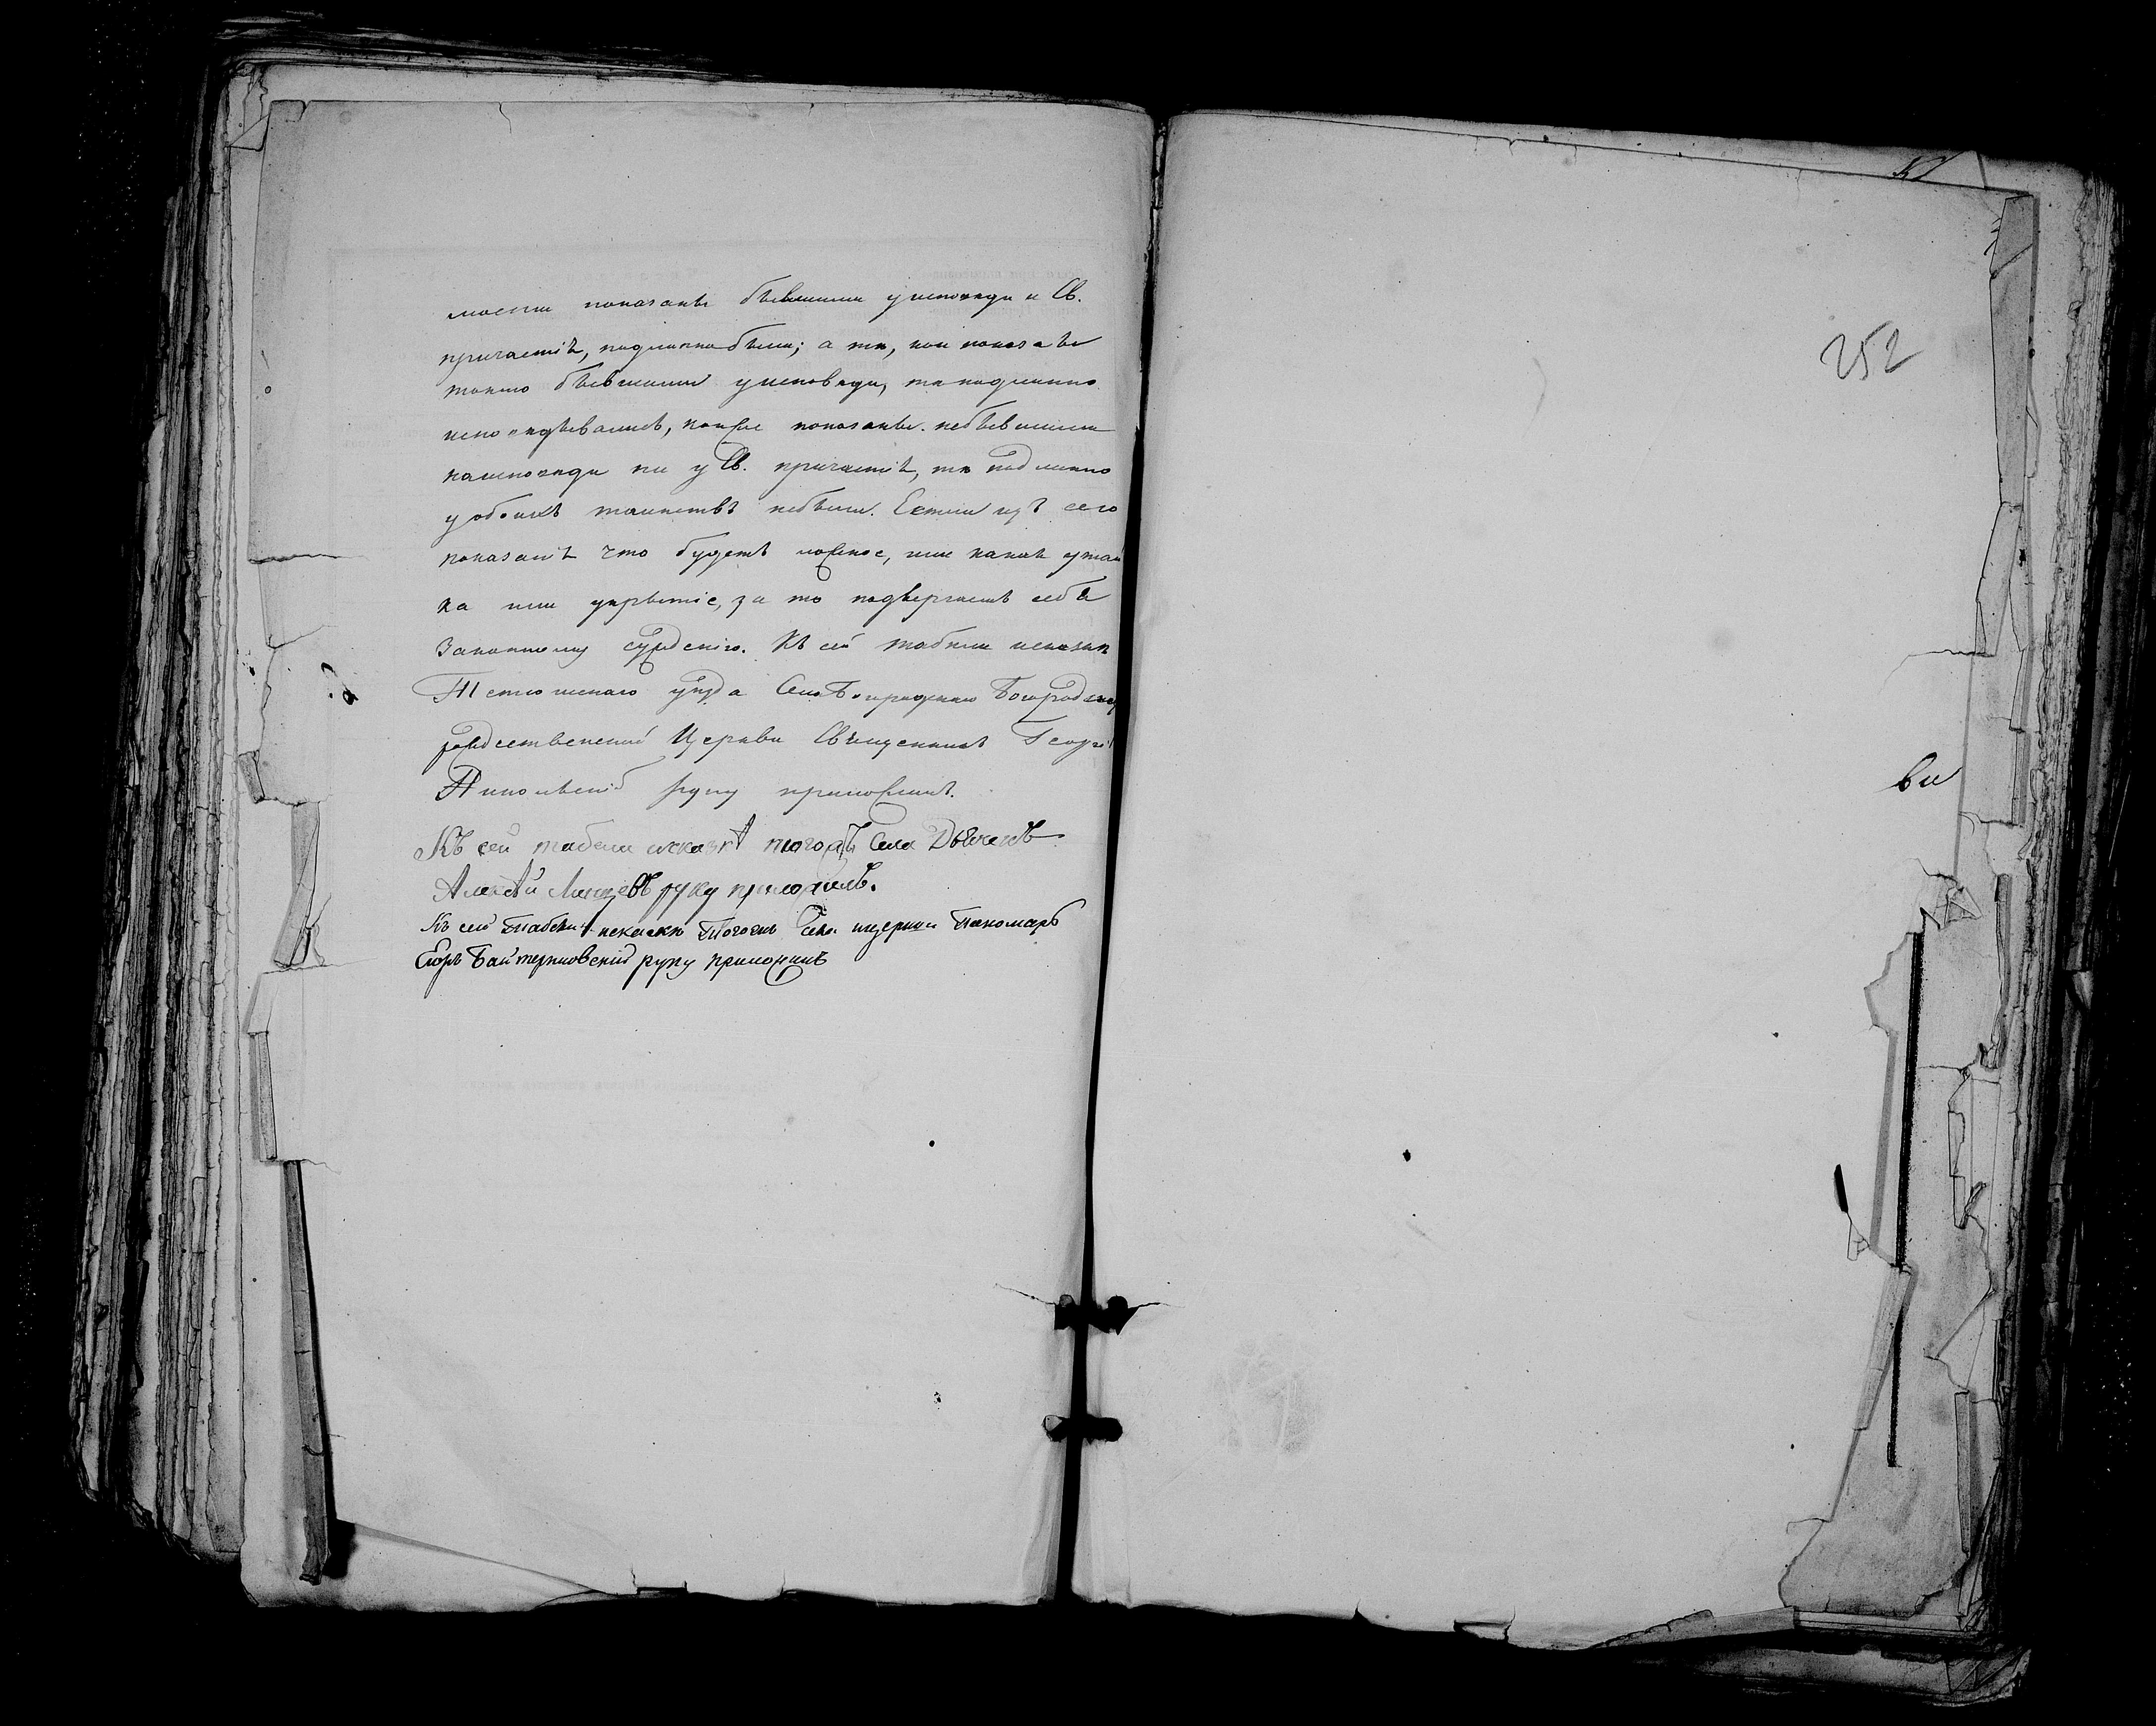 мости показаны бывшими у исповѣди и Св.
причастія, подлинно были; а тѣ, кои показаны
токмо бывшими у исповѣди, тѣ подлинно
исповѣдывались, кои же показаны небывшими
на исповѣди ни у Св. причастія, тѣ подлинно
у обоихъ таинствъ небыли. Естли изъ сего
показанія что будетъ ложное, или какая утай
ка или укрытіе, за то подвергаемъ себя
законному сужденію. Къ сей табели исказкѣ
уѣзда Села Богородско
рождественской Церкви Священникъ Георгій
Никольскій руку приложилъ.
Къ сей табели исказкѣ тогожъ Села Дьячекъ
Алексѣй руку приложилъ.
Къ сей табели исказкѣ тогожъ Села церкви Пономарь
Егоръ руку приложилъ
252
ви